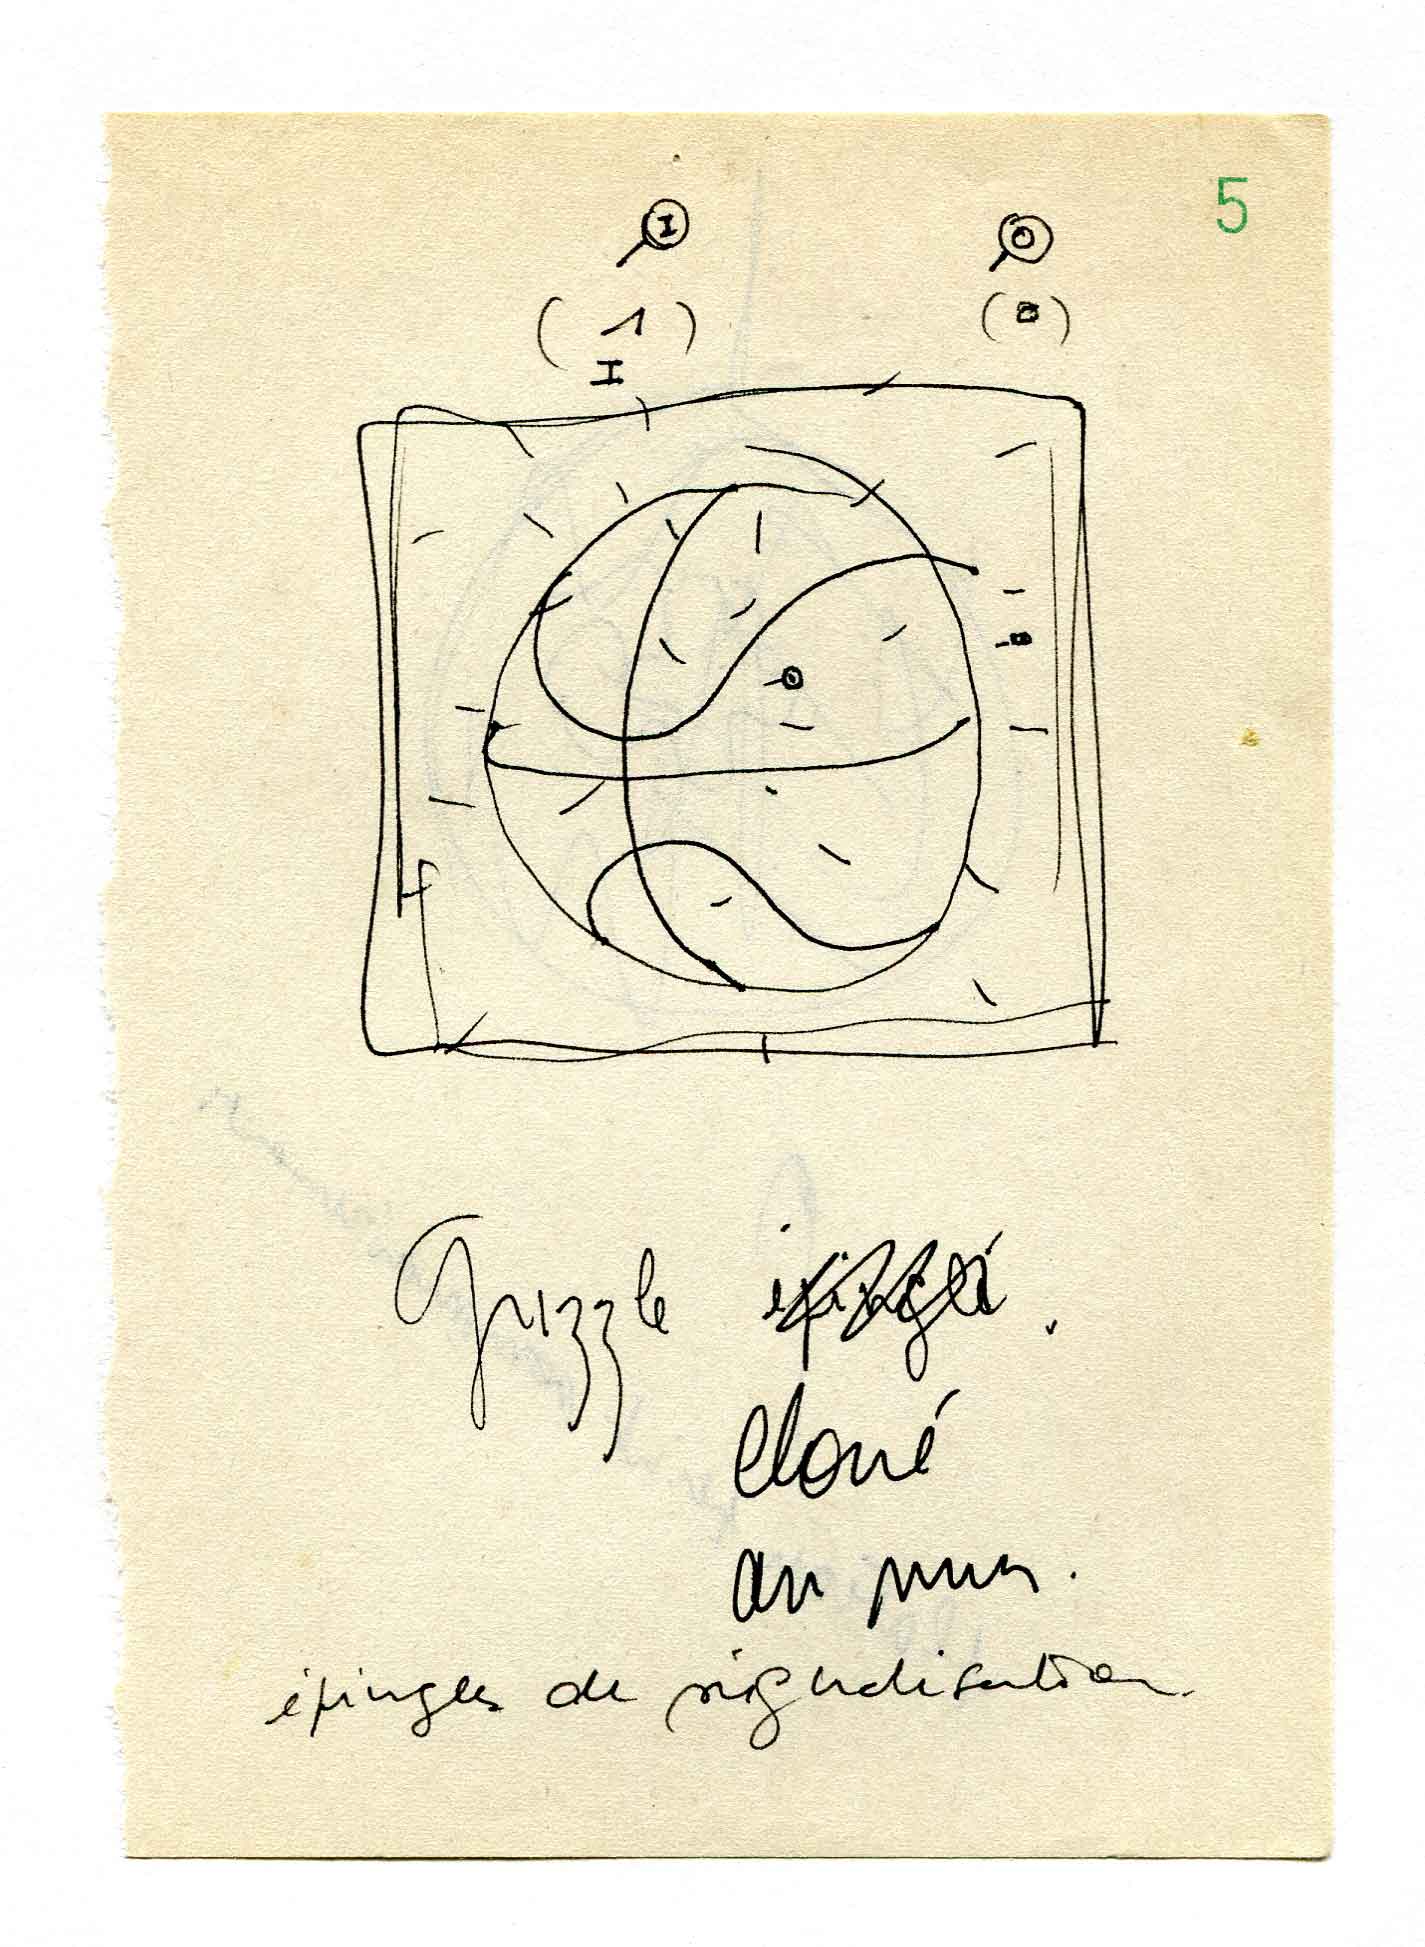 5
I 0
( 1 ) ( 0 )
I
Puzzle épinglé.
Cloué
au mur.
épingles de signalisation.